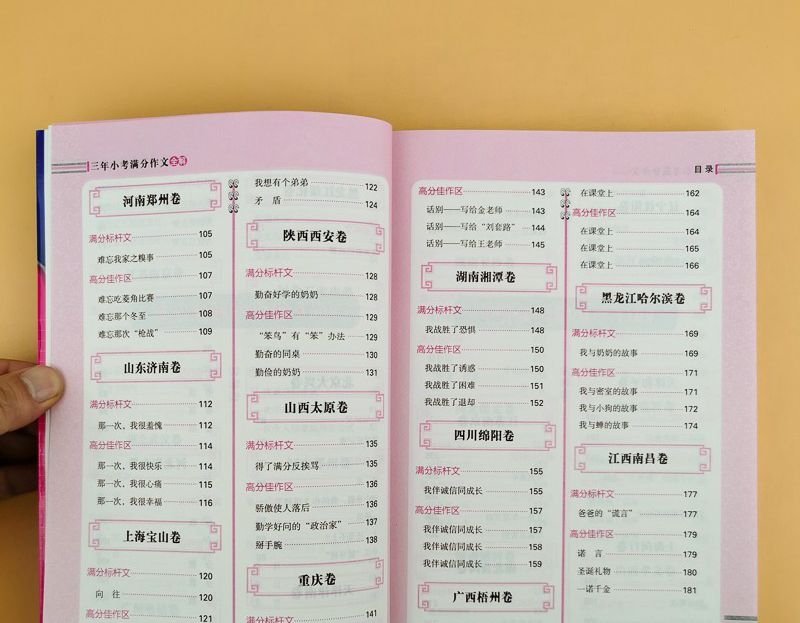 三年小考满分作文全解
河南郑州卷
满分标杆文 105
难忘我家之糗事 105
高分佳作区 107
难忘吃菱角比赛 107
难忘那个冬至 108
难忘那次“枪战” 109
山东济南卷
满分标杆文 112
那一次，我很羞愧 112
高分佳作区 114
那一次，我很快乐 114
那一次，我很心痛 115
那一次，我很幸福 116
上海宝山卷
满分标杆文 120
向 往 120
高分佳作区 121
我想有个弟弟 122
矛 盾 124
陕西西安卷
满分标杆文 128
勤奋好学的奶奶 128
高分佳作区 129
“笨鸟”有“笨”办法 129
勤奋的同桌 130
勤俭的奶奶 131
山西太原卷
满分标杆文 135
得了满分反挨骂 135
高分佳作区 136
骄傲使人落后 136
勤学好问的“政治家” 137
掰手腕 138
重庆卷
满分标杆文 141
目录
高分佳作区 143
话别——写给金老师 143
话别——写给“刘套路” 144
话别——写给王老师 145
湖南湘潭卷
满分标杆文 148
我战胜了恐惧 148
高分佳作区 150
我战胜了诱惑 150
我战胜了困难 151
我战胜了退却 152
四川绵阳卷
满分标杆文 155
我伴诚信同成长 155
高分佳作区 157
我伴诚信同成长 157
我伴诚信同成长 158
我伴诚信同成长 159
广西梧州卷
在课堂上 162
高分佳作区 164
在课堂上 164
在课堂上 165
在课堂上 166
黑龙江哈尔滨卷
满分标杆文 169
我与奶奶的故事 169
高分佳作区 171
我与密室的故事 171
我与小狗的故事 172
我与蝉的故事 174
江西南昌卷
满分标杆文 177
爸爸的“谎言” 177
高分佳作区 179
诺 言 179
圣诞礼物 180
一诺千金 181